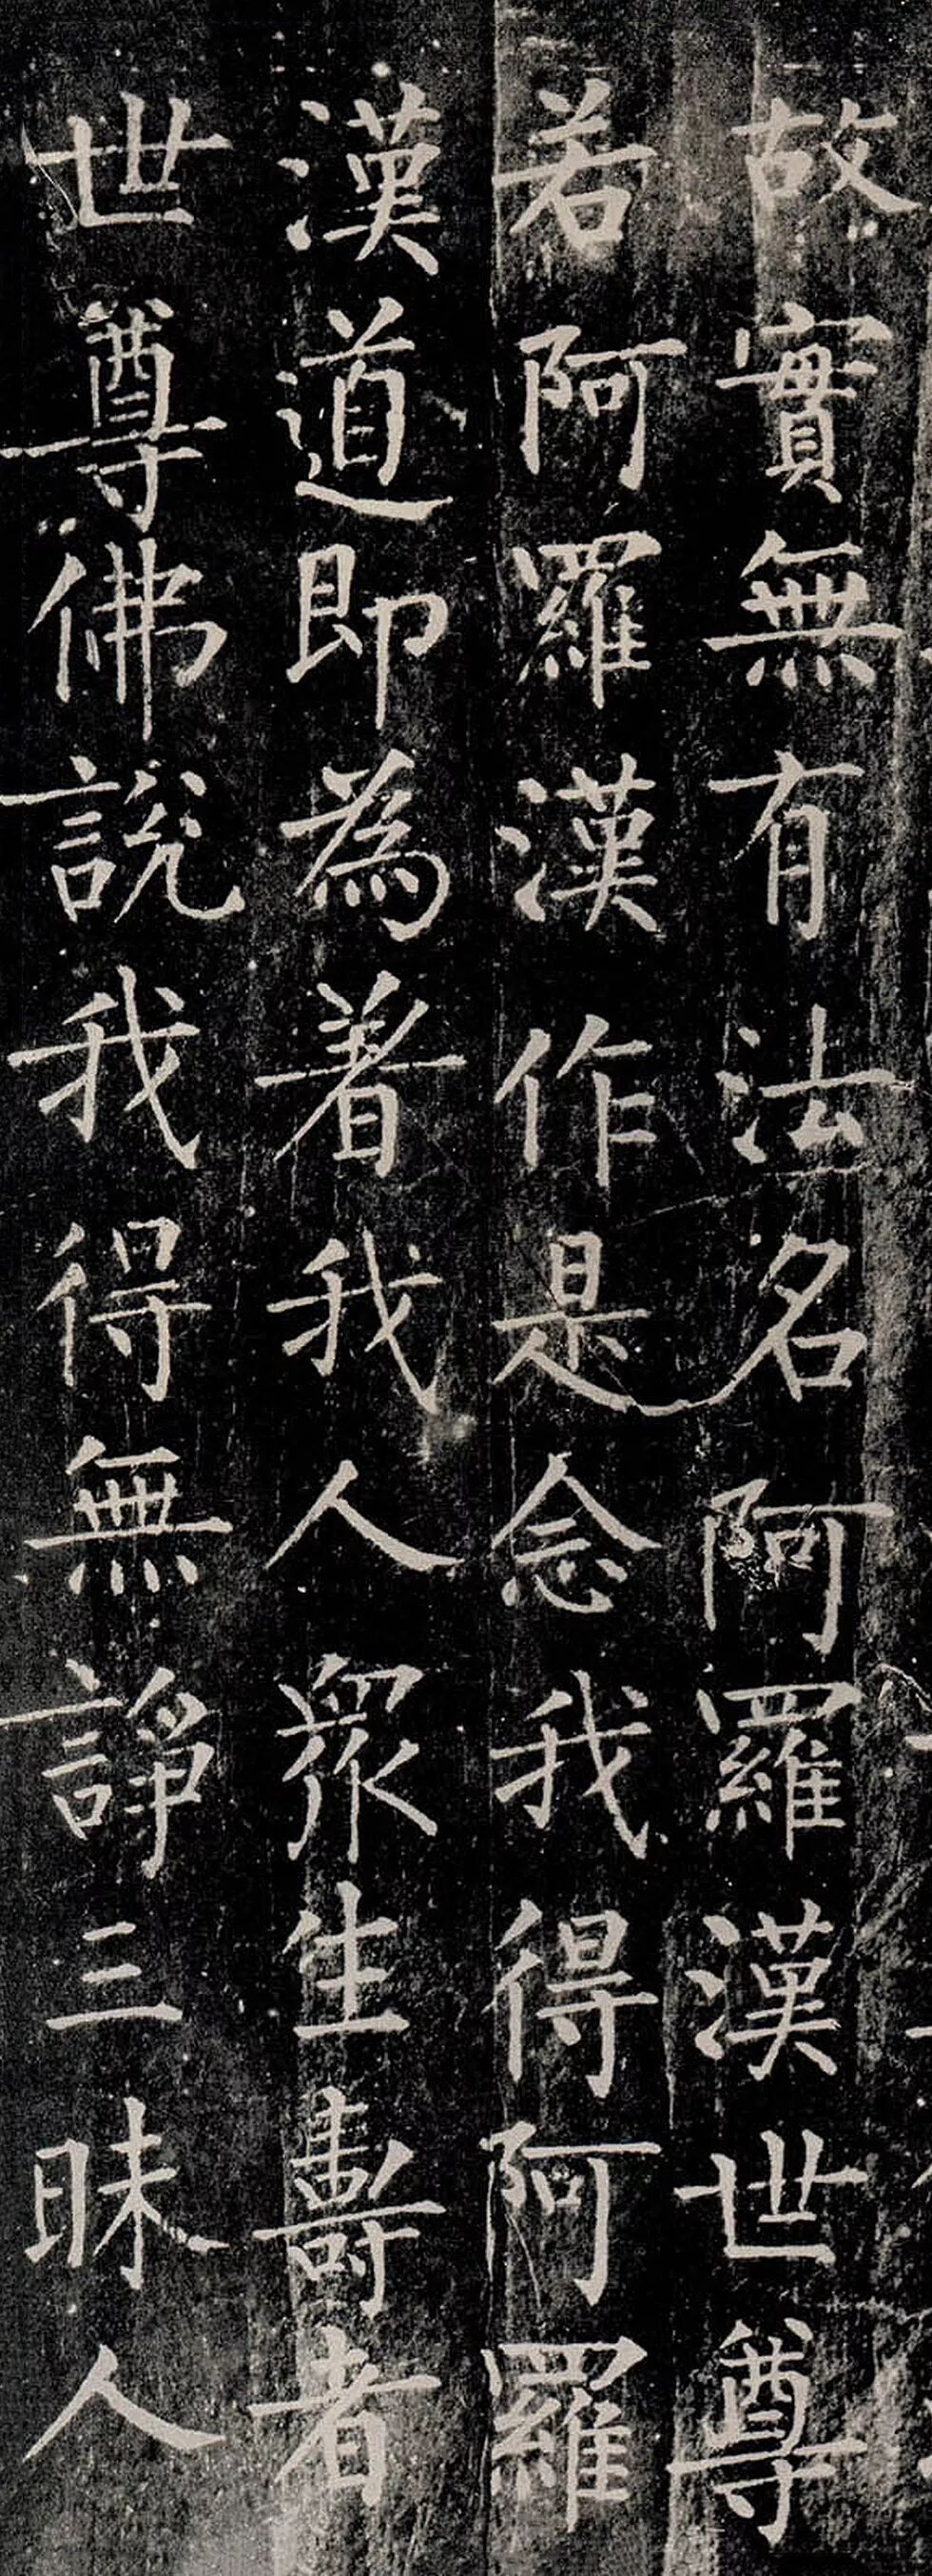 故實無有法名阿羅漢世尊
若阿羅漢作是念我得阿羅
漢道即為著我人眾生壽者
世尊佛說我得無諍三昧人